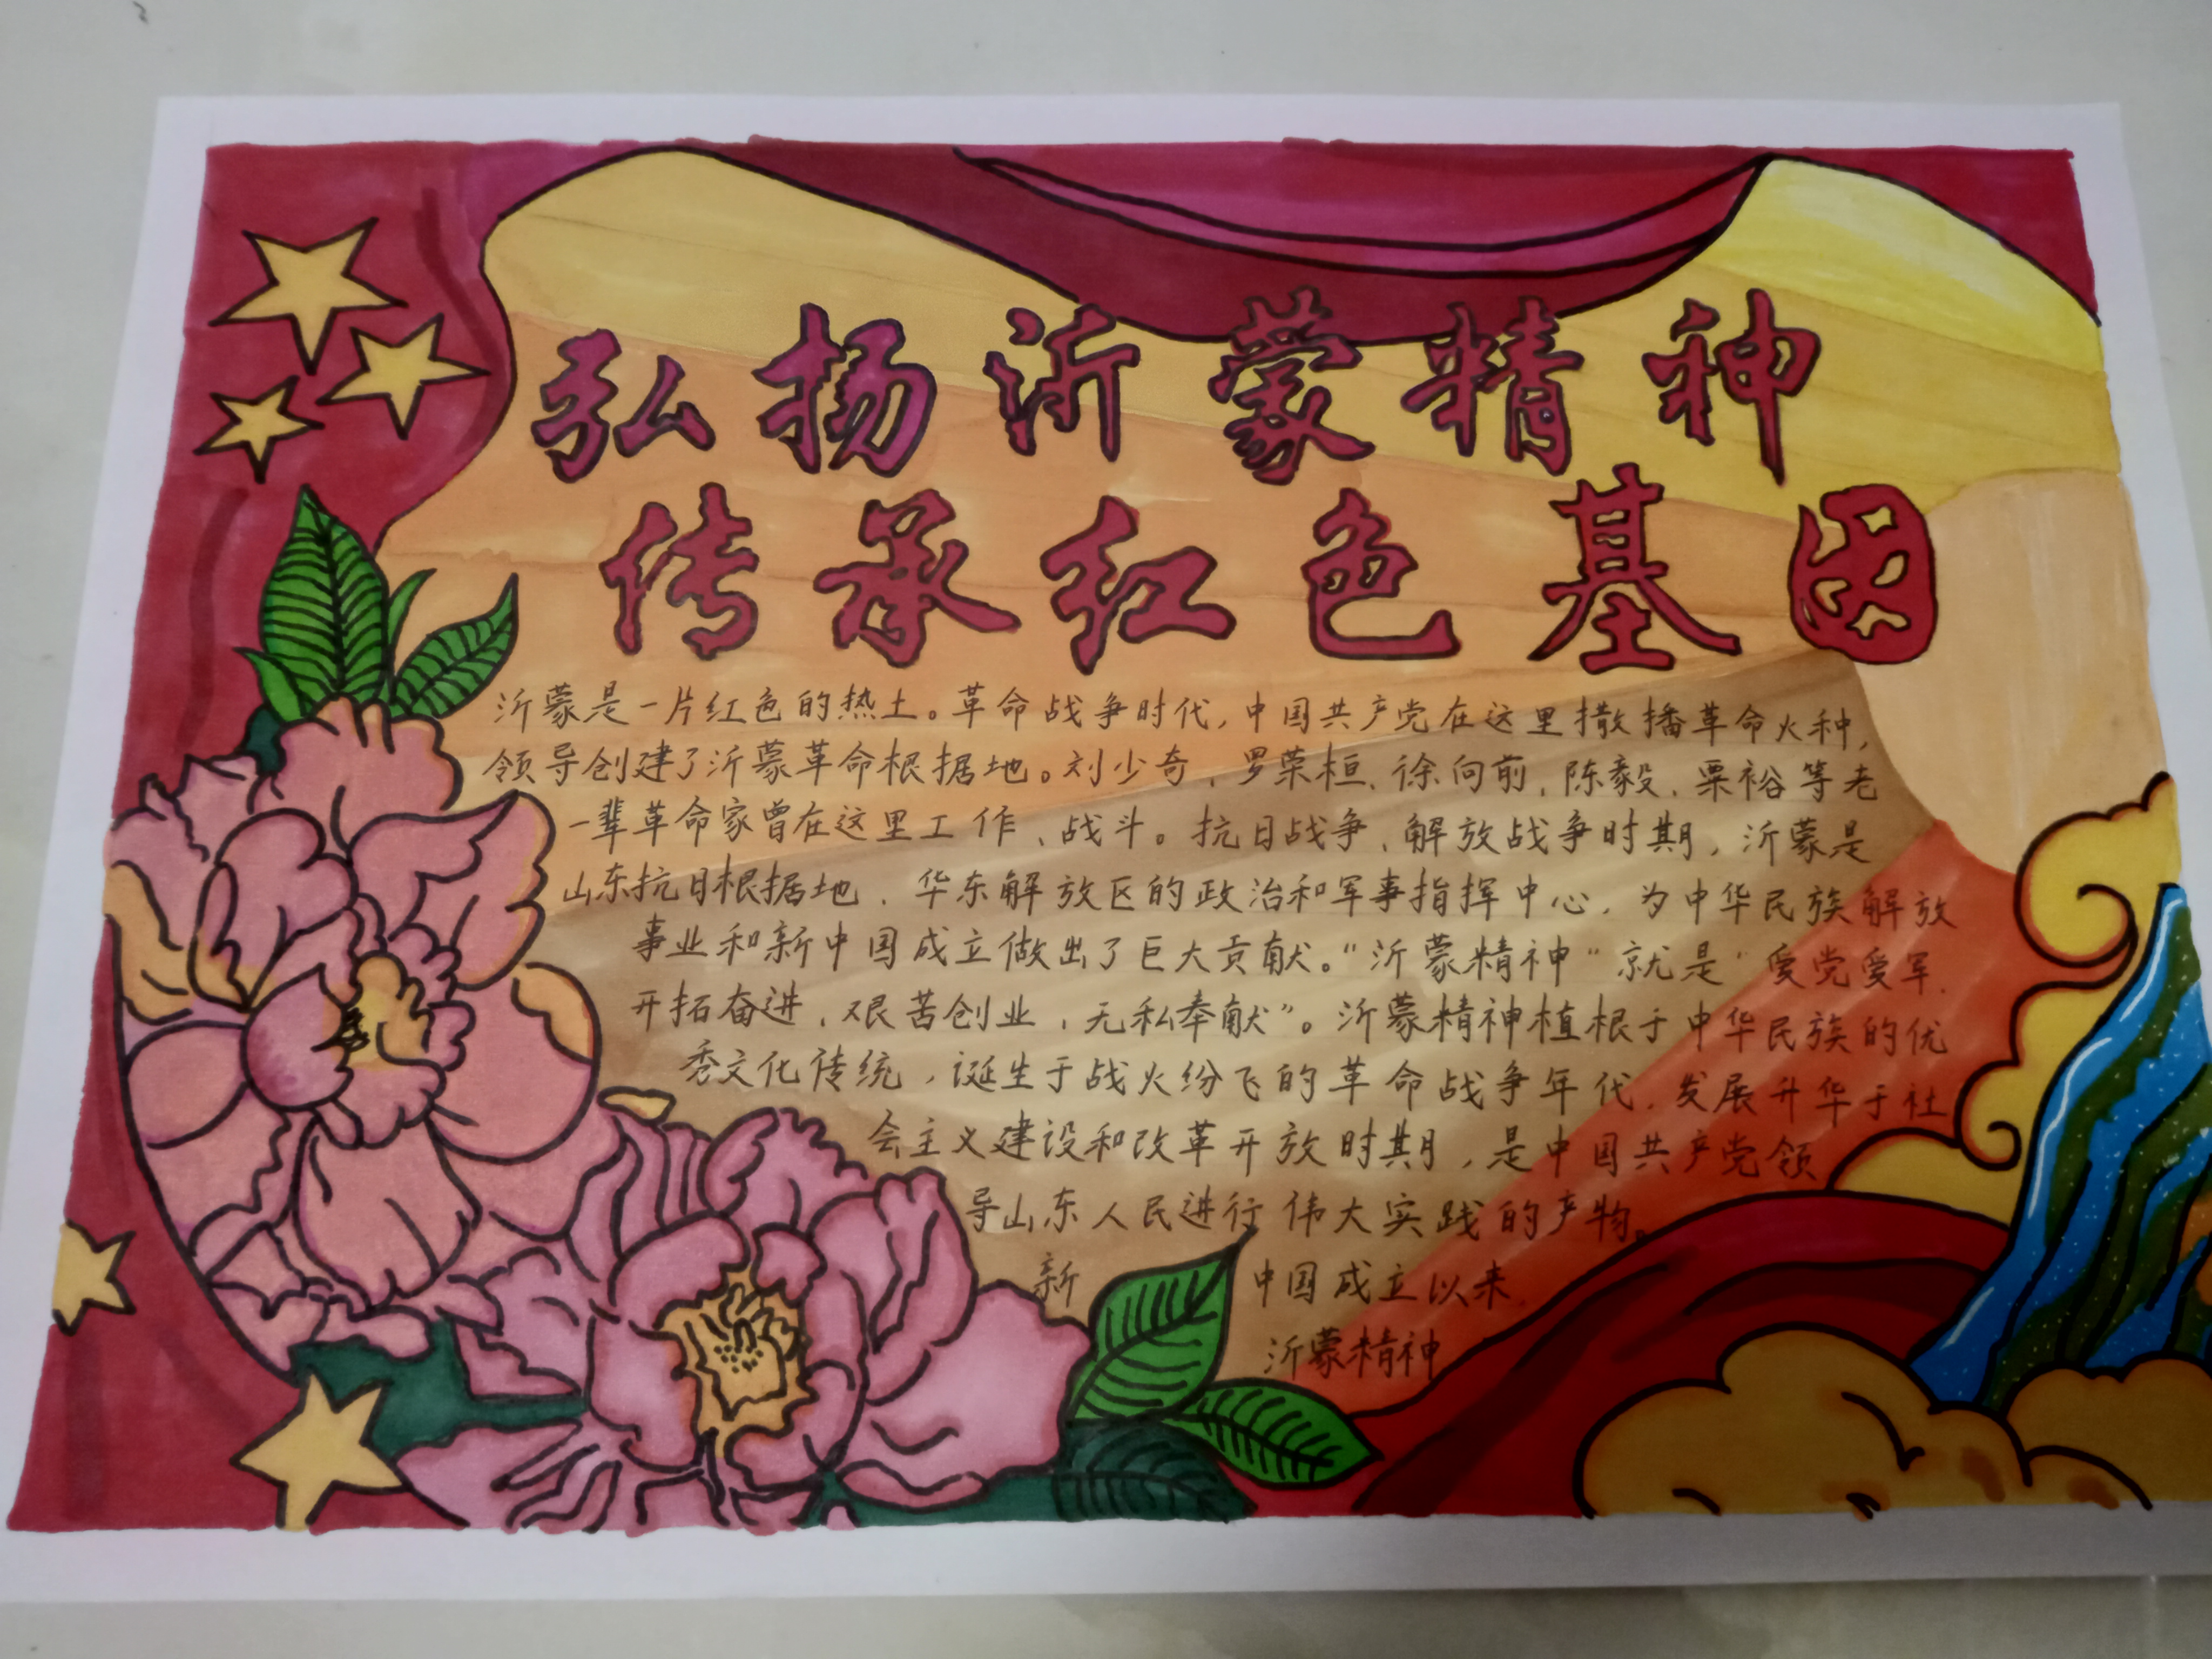 弘扬沂蒙精神
传承红色基因
沂蒙是一片红色的热土。革命战争时代，中国共产党在这里撒播革命火种，
领导创建了沂蒙革命根据地。刘少奇、罗荣桓、徐向前、陈毅、粟裕等老
一辈革命家曾在这里工作、战斗。抗日战争、解放战争时期，沂蒙是
山东抗日根据地、华东解放区的政治和军事指挥中心，为中华民族解放
事业和新中国成立做出了巨大贡献。“沂蒙精神“就是”爱党爱军、
开拓奋进、艰苦创业、无私奉献”。沂蒙精神植根于中华民族的优
秀文化传统，诞生于战火纷飞的革命战争年代，发展升华于社
会主义建设和改革开放时期，是中国共产党领
导山东人民进行伟大实践的产物。
新中国成立以来，
沂蒙精神